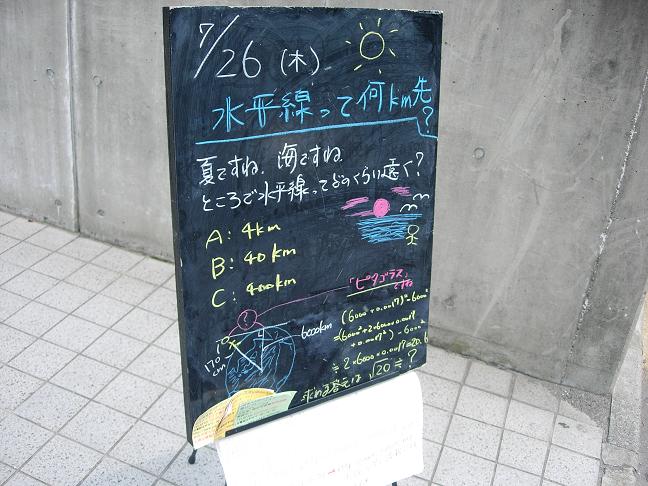 7/26 (木)
水平線って何km先?
夏ですね。海ですね。
ところで水平線ってどのくらい遠く?
A: 4km
B: 40km
C: 400km
「ピタゴラス」
ですね
?
170
cm
6000km
(6000+0.0017)²-6000²
=(6000²+2×6000×0.0017
+0.0017²)-6000²
≒2×6000×0.0017=20.
求める答えは √20≒?